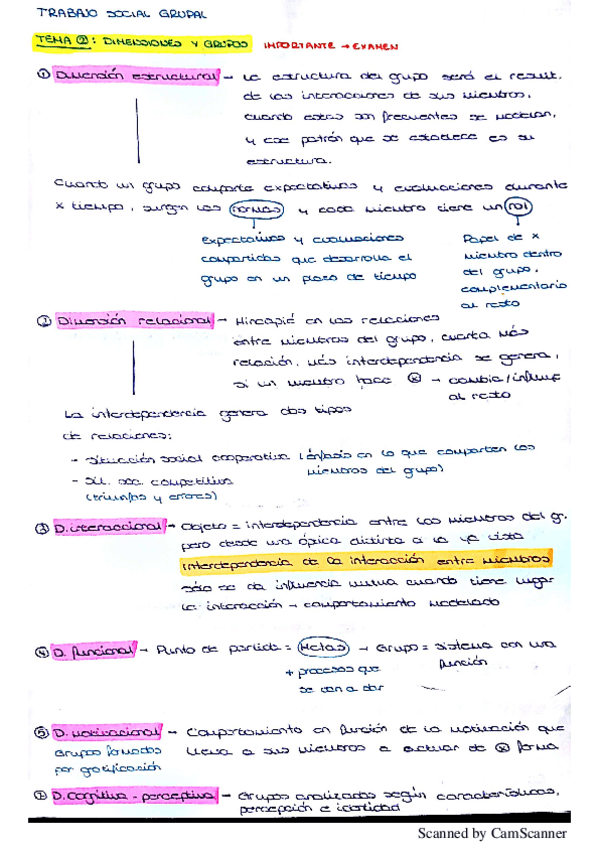 TRABAJO SOCIAL GRUPAL
TEMA ②: DIMENSIONES Y GRUPOS IMPORTANTE → EXAMEN
① Dimensión estructural → La estructura del grupo será el result.
de las interacciones de sus miembros,
cuando estas son frecuentes se modelan,
y ese patrón que se establece es su
estructura.
Cuando un grupo comparte expectativas y evaluaciones durante
x tiempo, surgen las normas y cada miembro tiene un rol
expectativas y evaluaciones
compartidas que desarrolla el
grupo en un plazo de tiempo
Papel de x
miembro dentro
del grupo,
complementario
al resto
② Dimensión relacional → Hincapié en las relaciones
entre miembros del grupo, cuanta más
relación, más interdependencia se genera,
si un miembro hace ⓧ → cambia/influye
al resto
La interdependencia genera dos tipos
de relaciones:
- Situación social cooperativa (énfasis en lo que comparten los
miembros del grupo)
- Sit. soc. competitiva
(triunfos y errores)
③ D. interaccional → Objeto = interdependencia entre los miembros del g.
pero desde una óptica distinta a la ya vista
interdependencia de la interacción entre miembros
sólo se da influencia mutua cuando tiene lugar
la interacción → comportamiento modelado
④ D. funcional → Punto de partida = Metas → Grupo = sistema con una
función
+ procesos que
se van a dar
⑤ D. motivacional → Comportamiento en función de la motivación que
lleva a sus miembros a actuar de ⓧ forma
Grupos formados
por gratificación
⑦ D. cognitiva - perceptiva → Grupos analizados según características,
percepción e identidad
Scanned by CamScanner